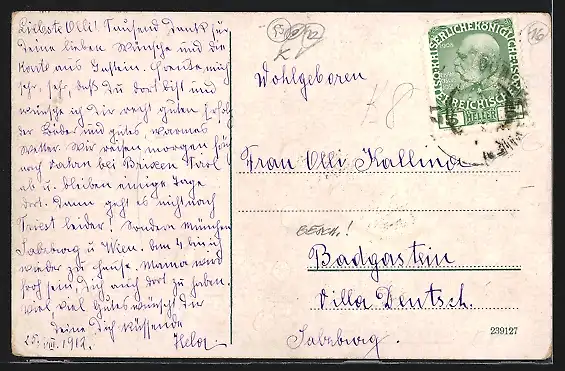 Liebste Olli! Tausend Dank für
deine lieben Wünsche und die
Karte aus Gastein. Freute mich
sehr, sehr, daß du dort bist und
wünsche ich dir recht guten Erfolg
der Bäder und gutes, warmes
Wetter. Wir reisen morgen früh
nach Zahrn bei Brixen Tirol
ab u. bleiben einige Tage
dort. Dann geht es nicht nach
Triest leider! Sondern München
Salzburg u. Wien. Am 4 bin ich
wieder zu Hause. Mama wird
froh sein dich auch dort zu haben.
Viel, viel Gutes wünscht dir
deine Dich küssende
25. VIII. 1912. Hela.
KAISERLICHE KÖNIGLICHE
ÖSTERREICHISCHE
1908
5 HELLER 5
Wohlgeboren
K 8
Frau Olli Kallina
BESCH.!
Badgastein
Villa Deutsch.
Salzburg.
239127